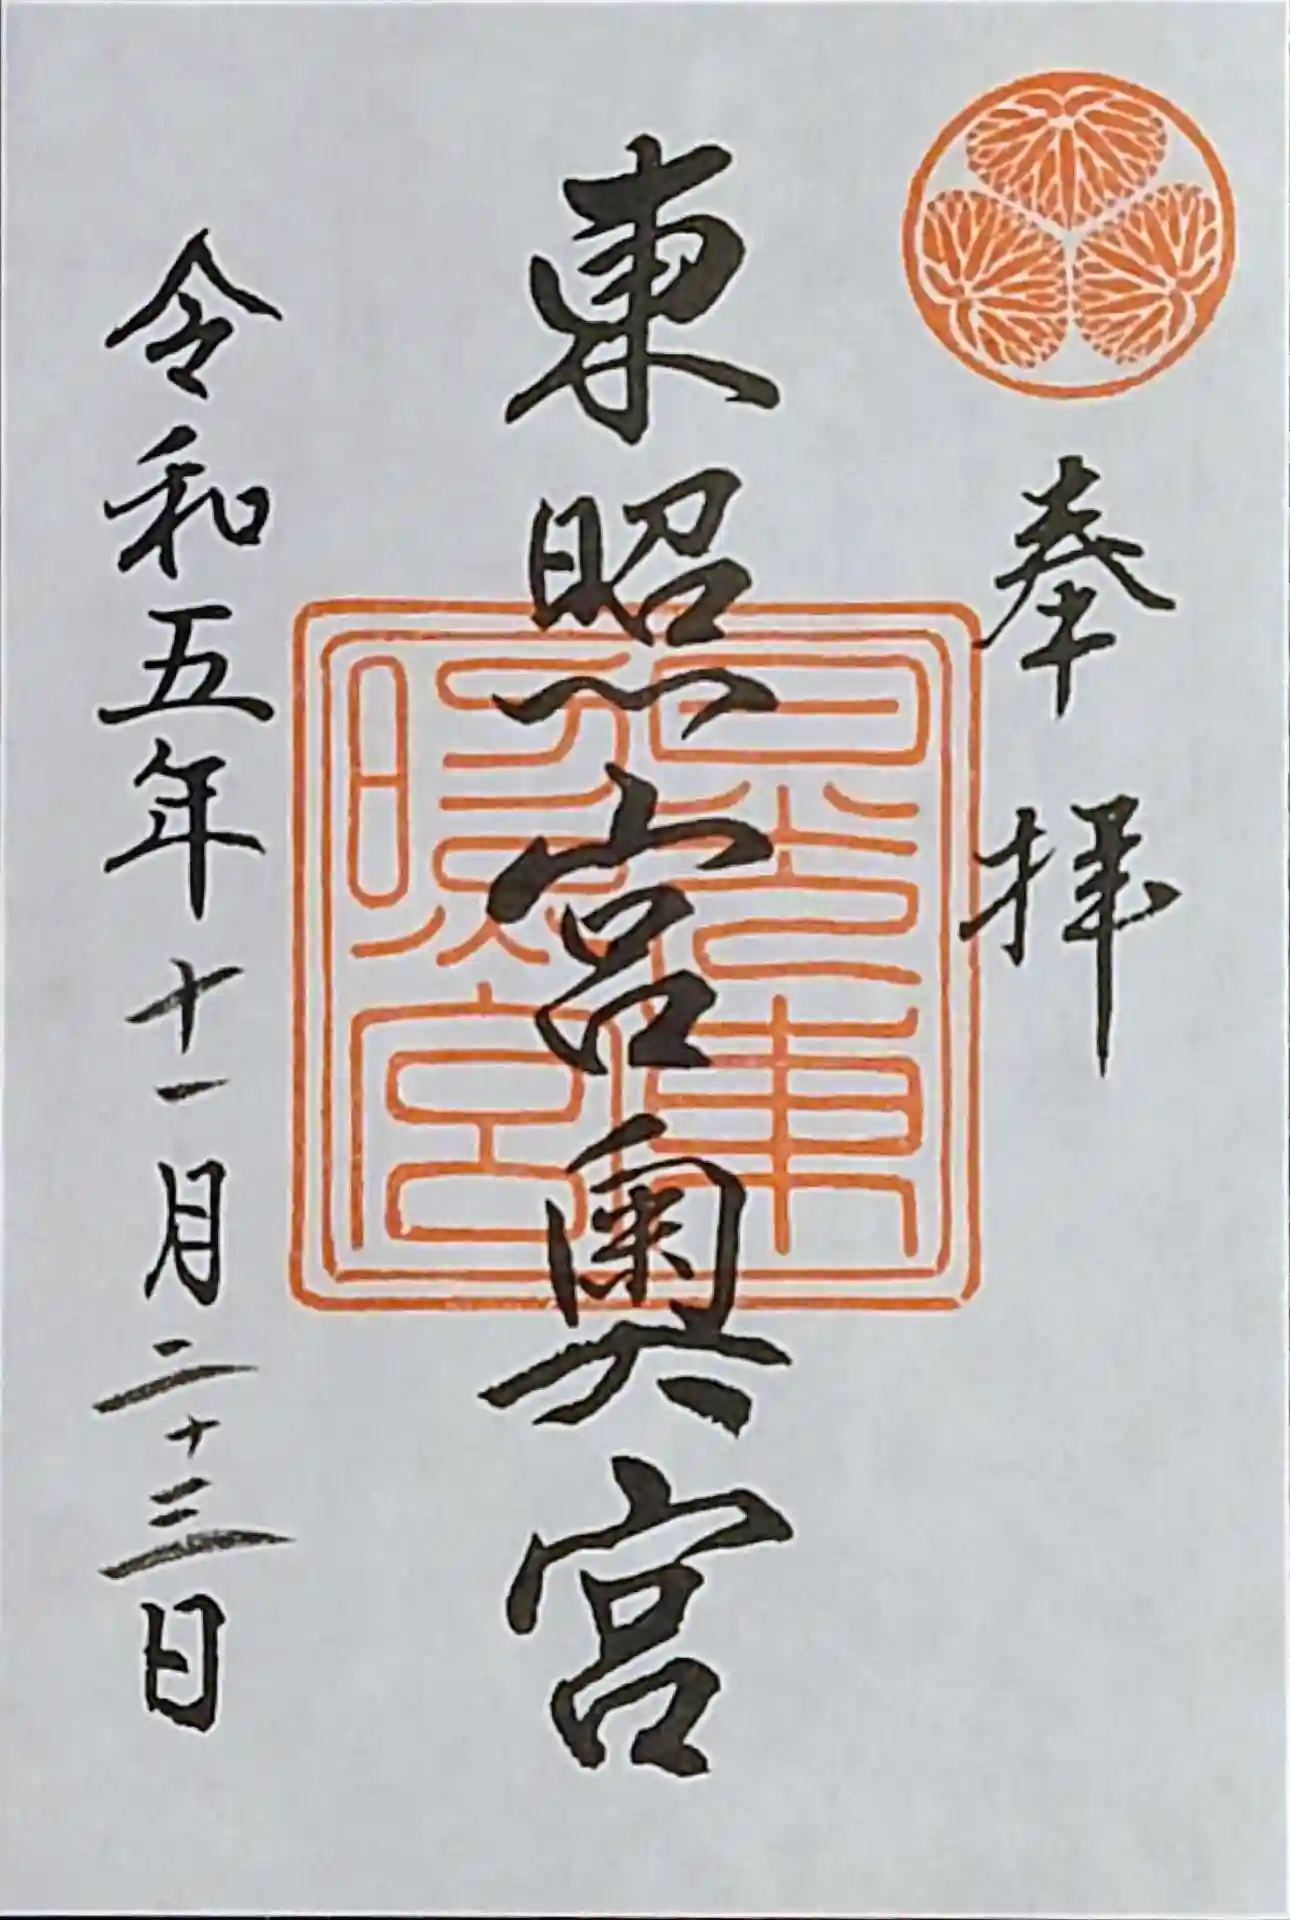 奉拝
東照宮奥宮
日光東
照宮
令和五年十一月二十三日